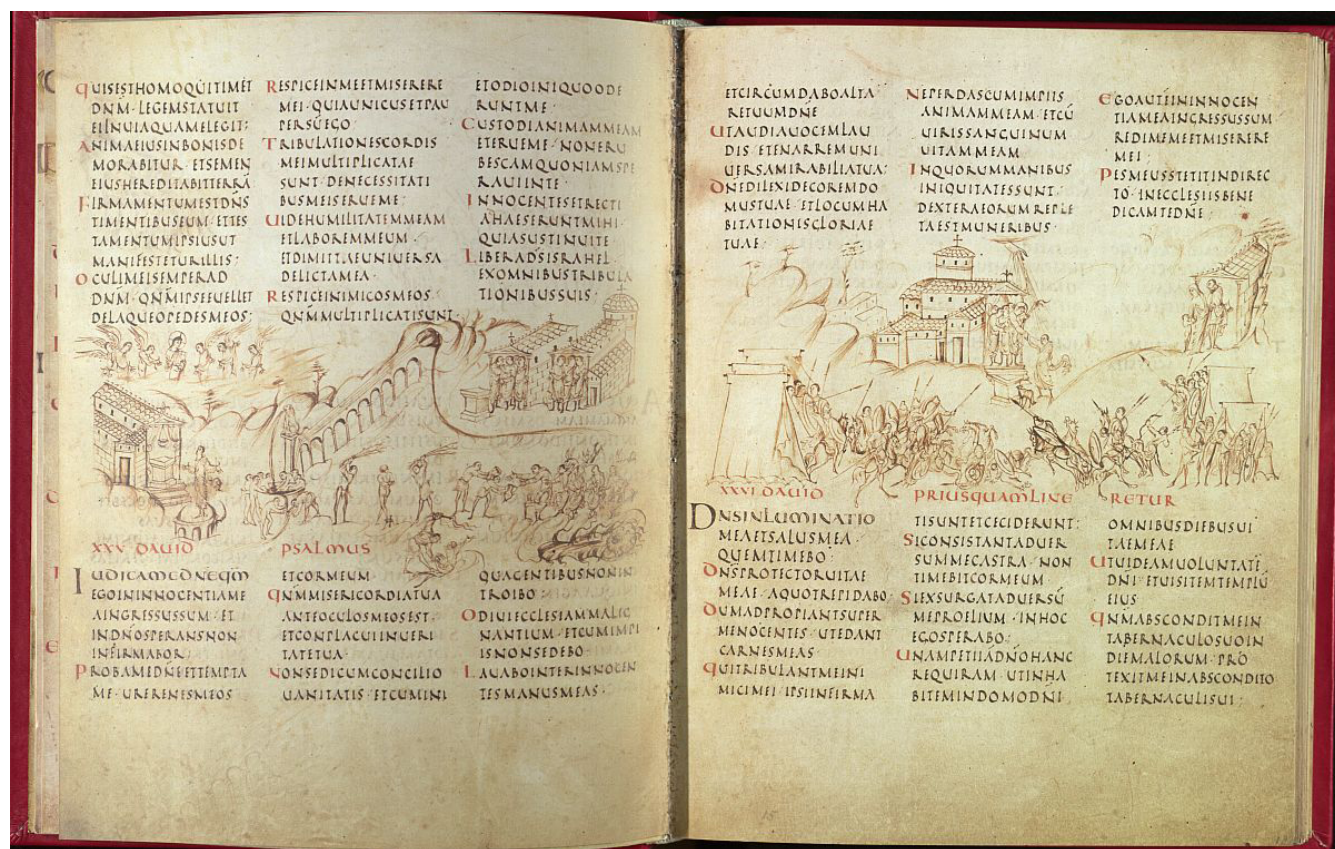 QUISESTHOMOQUITIMET
DNM·LEGEMSTATUIT
EIINUIAQUAMELEGIT:
ANIMAEIUSINBONISDE
MORABITUR·ETSEMEN
EIUSHEREDITABITTERRĀ
FIRMAMENTUMESTDNS
TIMENTIBUSEUM·ETTES
TAMENTUMIPSIUSUT
MANIFESTETURILLIS:
OCULIMEISEMPERAD
DNM·QNMIPSEEUELLET
DELAQUEOPEDESMEOS:
RESPICEINMEETMISERERE
MEI·QUIAUNICUSETPAU
PERSŪEGO·
TRIBULATIONESCORDIS
MEIMULTIPLICATAE
SUNT·DENECESSITATI
BUSMEISERUEME·
UIDEHUMILITATEMMEAM
ETLABOREMMEUM·
ETDIMITTAEUNIUERSA
DELICTAMEA·
RESPICEINIMICOSMEOS
QNMMULTIPLICATISUNT·
ETODIOINIQUOODE
RUNTME·
CUSTODIANIMAMMEAM
ETERUEME·NONERU
BESCAMQUONIAMSPE
RAUIINTE·
INNOCENTESETRECTI
AHAESERUNTMIHI·
QUIASUSTINUITE·
LIBERADSISRAHEL
EXOMNIBUSTRIBULA
TIONIBUSSUIS·
XXV DAUID PSALMUS
IUDICAMEDNEQM
EGOININNOCENTIAME
AINGRESSUSSUM·ET
INDNOSPERANSNON
INFIRMABOR·
PROBAMEDNEETTEMPTA
ME·URERENESMEOS
ETCORMEUM·
QNMMISERICORDIATUA
ANTEOCULOSMEOSEST·
ETCONPLACUIINUERI
TATETUA·
NONSEDICUMCONCILIO
UANITATIS·ETCUMINI
QUAGENTIBUSNONIN
TROIBO·
ODIUIECCLESIAMMALIG
NANTIUM·ETCUMIMPI
ISNONSEDEBO·
LAUABOINTERINNOCEN
TESMANUSMEAS·
ETCIRCUMDABOALTA
RETUUMDNE
UTAUDIAUOCEMLAU
DIS·ETENARREMUNI
UERSAMIRABILIATUA:
DNEDILEXIDECOREMDO
MUSTUAE·ETLOCUMHA
BITATIONISGLORIAE
TUAE·
NEPERDASCUMIMPIIS
ANIMAMMEAM·ETCŪ
UIRISSANGUINUM
UITAMMEAM
INQUORUMMANIBUS
INIQUITATESSUNT·
DEXTERAEORUMREPLE
TAESTMUNERIBUS·
EGOAUTĒININNOCEN
TIAMEAINGRESSUSSUM
REDIMEMEETMISERERE
MEI:
PESMEUSSTETITINDIREC
TO·INECCLESIISBENE
DICAMTEDNE·
XXVI DAUID PRIUSQUAMLINE RETUR
DNSINLUMINATIO
MEAETSALUSMEA·
QUEMTIMEBO·
DNSPROTECTORUITAE
MEAE·AQUOTREPIDABO·
DUMADPROPIANTSUPER
MENOCENTES·UTEDANT
CARNESMEAS·
QUITRIBULANTMEINI
MICIMEI·IPSIINFIRMA
TISUNTETCECIDERUNT:
SICONSISTANTADUER
SUMMECASTRA·NON
TIMEBITCORMEUM
SIEXSURGATADUERSŪ
MEPROELIUM·INHOC
EGOSPERABO:
UNAMPETIIADNOHANC
REQUIRAM·UTINHA
BITEMINDOMODNI
OMNIBUSDIEBUSUI
TAEMEAE
UTUIDEAMUOLUNTATĒ
DNI·ETUISITEMTEMPLŪ
EIUS·
QNMABSCONDITMEIN
TABERNACULOSUOIN
DIEMALORUM·PRO
TEXITMEINABSCONDITO
TABERNACULISUI·